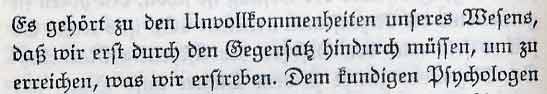 Es gehört zu den Unvollkommenheiten unseres Wesens,
daß wir erst durch den Gegensatz hindurch müssen, um zu
erreichen, was wir erstreben. Dem kundigen Psychologen